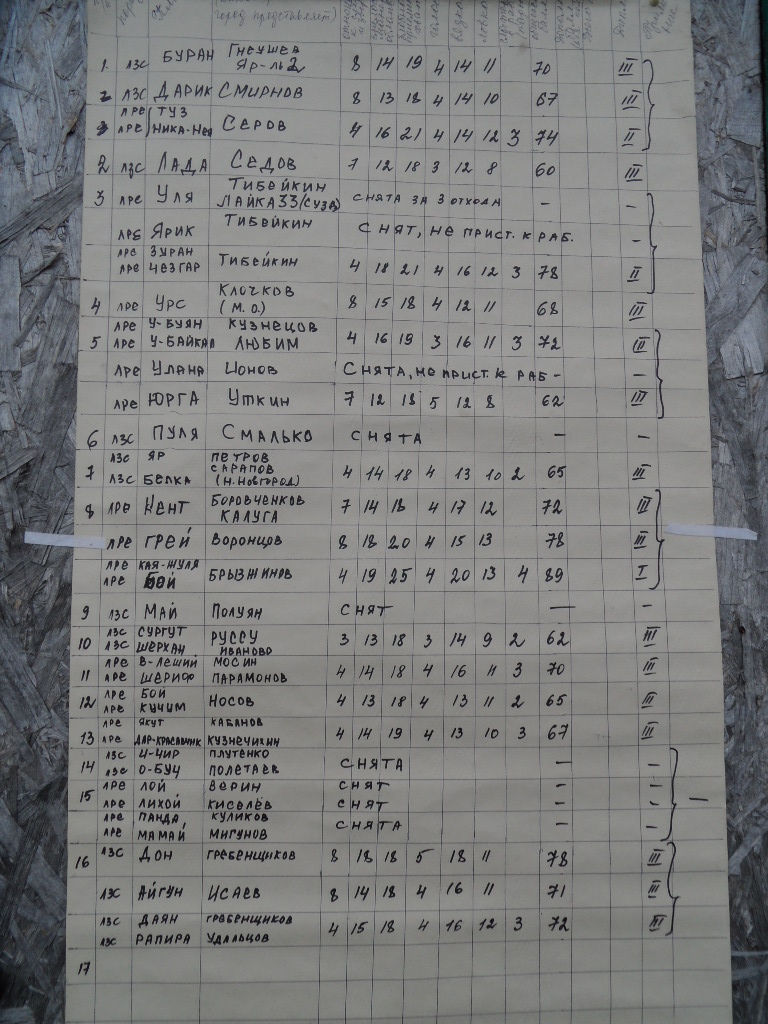 город представляет)
1. ЛЗС БУРАН ГНЕУШЕВ
ЯР-ЛЬ 2 8 14 19 4 14 11 70 III
2 ЛЗС ДАРИК СМИРНОВ 8 13 18 4 14 10 67 III
ЛРЕ ТУЗ
3 ЛРЕ НИКА-НЕЯ СЕРОВ 4 16 21 4 14 12 3 74 II
2 ЛЗС ЛАДА СЕДОВ 7 12 18 3 12 8 60 III
3 ЛРЕ УЛЯ ТИБЕЙКИН
ЛАЙКА 33 (СУЗА) СНЯТА ЗА 3 ОТХОДА – –
ЛРЕ ЯРИК ТИБЕЙКИН СНЯТ, НЕ ПРИСТ. К РАБ. –
ЛРЕ ЗУРАН
ЛРЕ ЧЕЗГАР ТИБЕЙКИН 4 18 21 4 16 12 3 78 II
4 ЛРЕ УРС КЛОЧКОВ
(М.О.) 8 15 18 4 12 11 68 III
ЛРЕ У-БУЯН КУЗНЕЦОВ
5 ЛРЕ У-БАЙКАЛ ЛЮБИМ 4 16 19 3 16 11 3 72 II
ЛРЕ УЛАНА ИОНОВ СНЯТА, НЕ ПРИСТ. К РАБ – –
ЛРЕ ЮРГА УТКИН 7 12 18 5 12 8 62 III
6 ЛЗС ПУЛЯ СМАЛЬКО СНЯТА – –
ЛЗС ЯР ПЕТРОВ
7 ЛЗС БЕЛКА САРАПОВ
(Н.НОВГОРОД) 4 14 18 4 13 10 2 65 III
8 ЛРЕ КЕНТ БОРОВЧЕНКОВ
КАЛУГА 7 14 18 4 17 12 72 III
ЛРЕ ГРЕЙ ВОРОНЦОВ 8 18 20 4 15 13 78 III
ЛРЕ КАЯ-ЖУЛЯ
ЛРЕ БОЙ БРЫЗЖИНОВ 4 19 25 4 20 13 4 89 I
9 ЛЗС МАЙ ПОЛУЯН СНЯТ – –
ЛЗС СУРГУТ РУССУ
10 ЛЗС ШЕРХАН ИВАНОВО 3 13 18 3 14 9 2 62 III
ЛРЕ В-ЛЕШИЙ МОСИН
11 ЛРЕ ШЕРИФ ПАРАМОНОВ 4 14 18 4 16 11 3 70 III
ЛРЕ БОЙ
12 ЛРЕ КУЧУМ НОСОВ 4 13 18 4 13 11 2 65 III
ЛРЕ ЯКУТ КАБАНОВ
13 ЛРЕ ДАР-КРАСАВЧИК КУЗНЕЧИХИН 4 14 19 4 13 10 3 67 III
ЛЗС Ч-ЧИР ПЛУТЕНКО
14 ЛЗС О-БУЧ ПОЛЕТАЕВ СНЯТА – –
ЛРЕ ЛОЙ ВЕРИН СНЯТ – –
15 ЛРЕ ЛИХОЙ КИСЕЛЁВ СНЯТ – – –
ЛРЕ ПАНДА КУЛИКОВ
ЛРЕ МАМАЙ МИГУНОВ СНЯТА – –
16 ЛЗС ДОН ГРЕБЕНЩИКОВ 8 18 18 5 18 11 78 III
ЛЗС АЙГУН ИСАЕВ 8 14 18 4 16 11 71 III
ЛЗС ДАЯН ГРЕБЕНЩИКОВ
ЛЗС РАПИРА УДАЛЬЦОВ 4 15 18 4 16 12 3 72 III
17